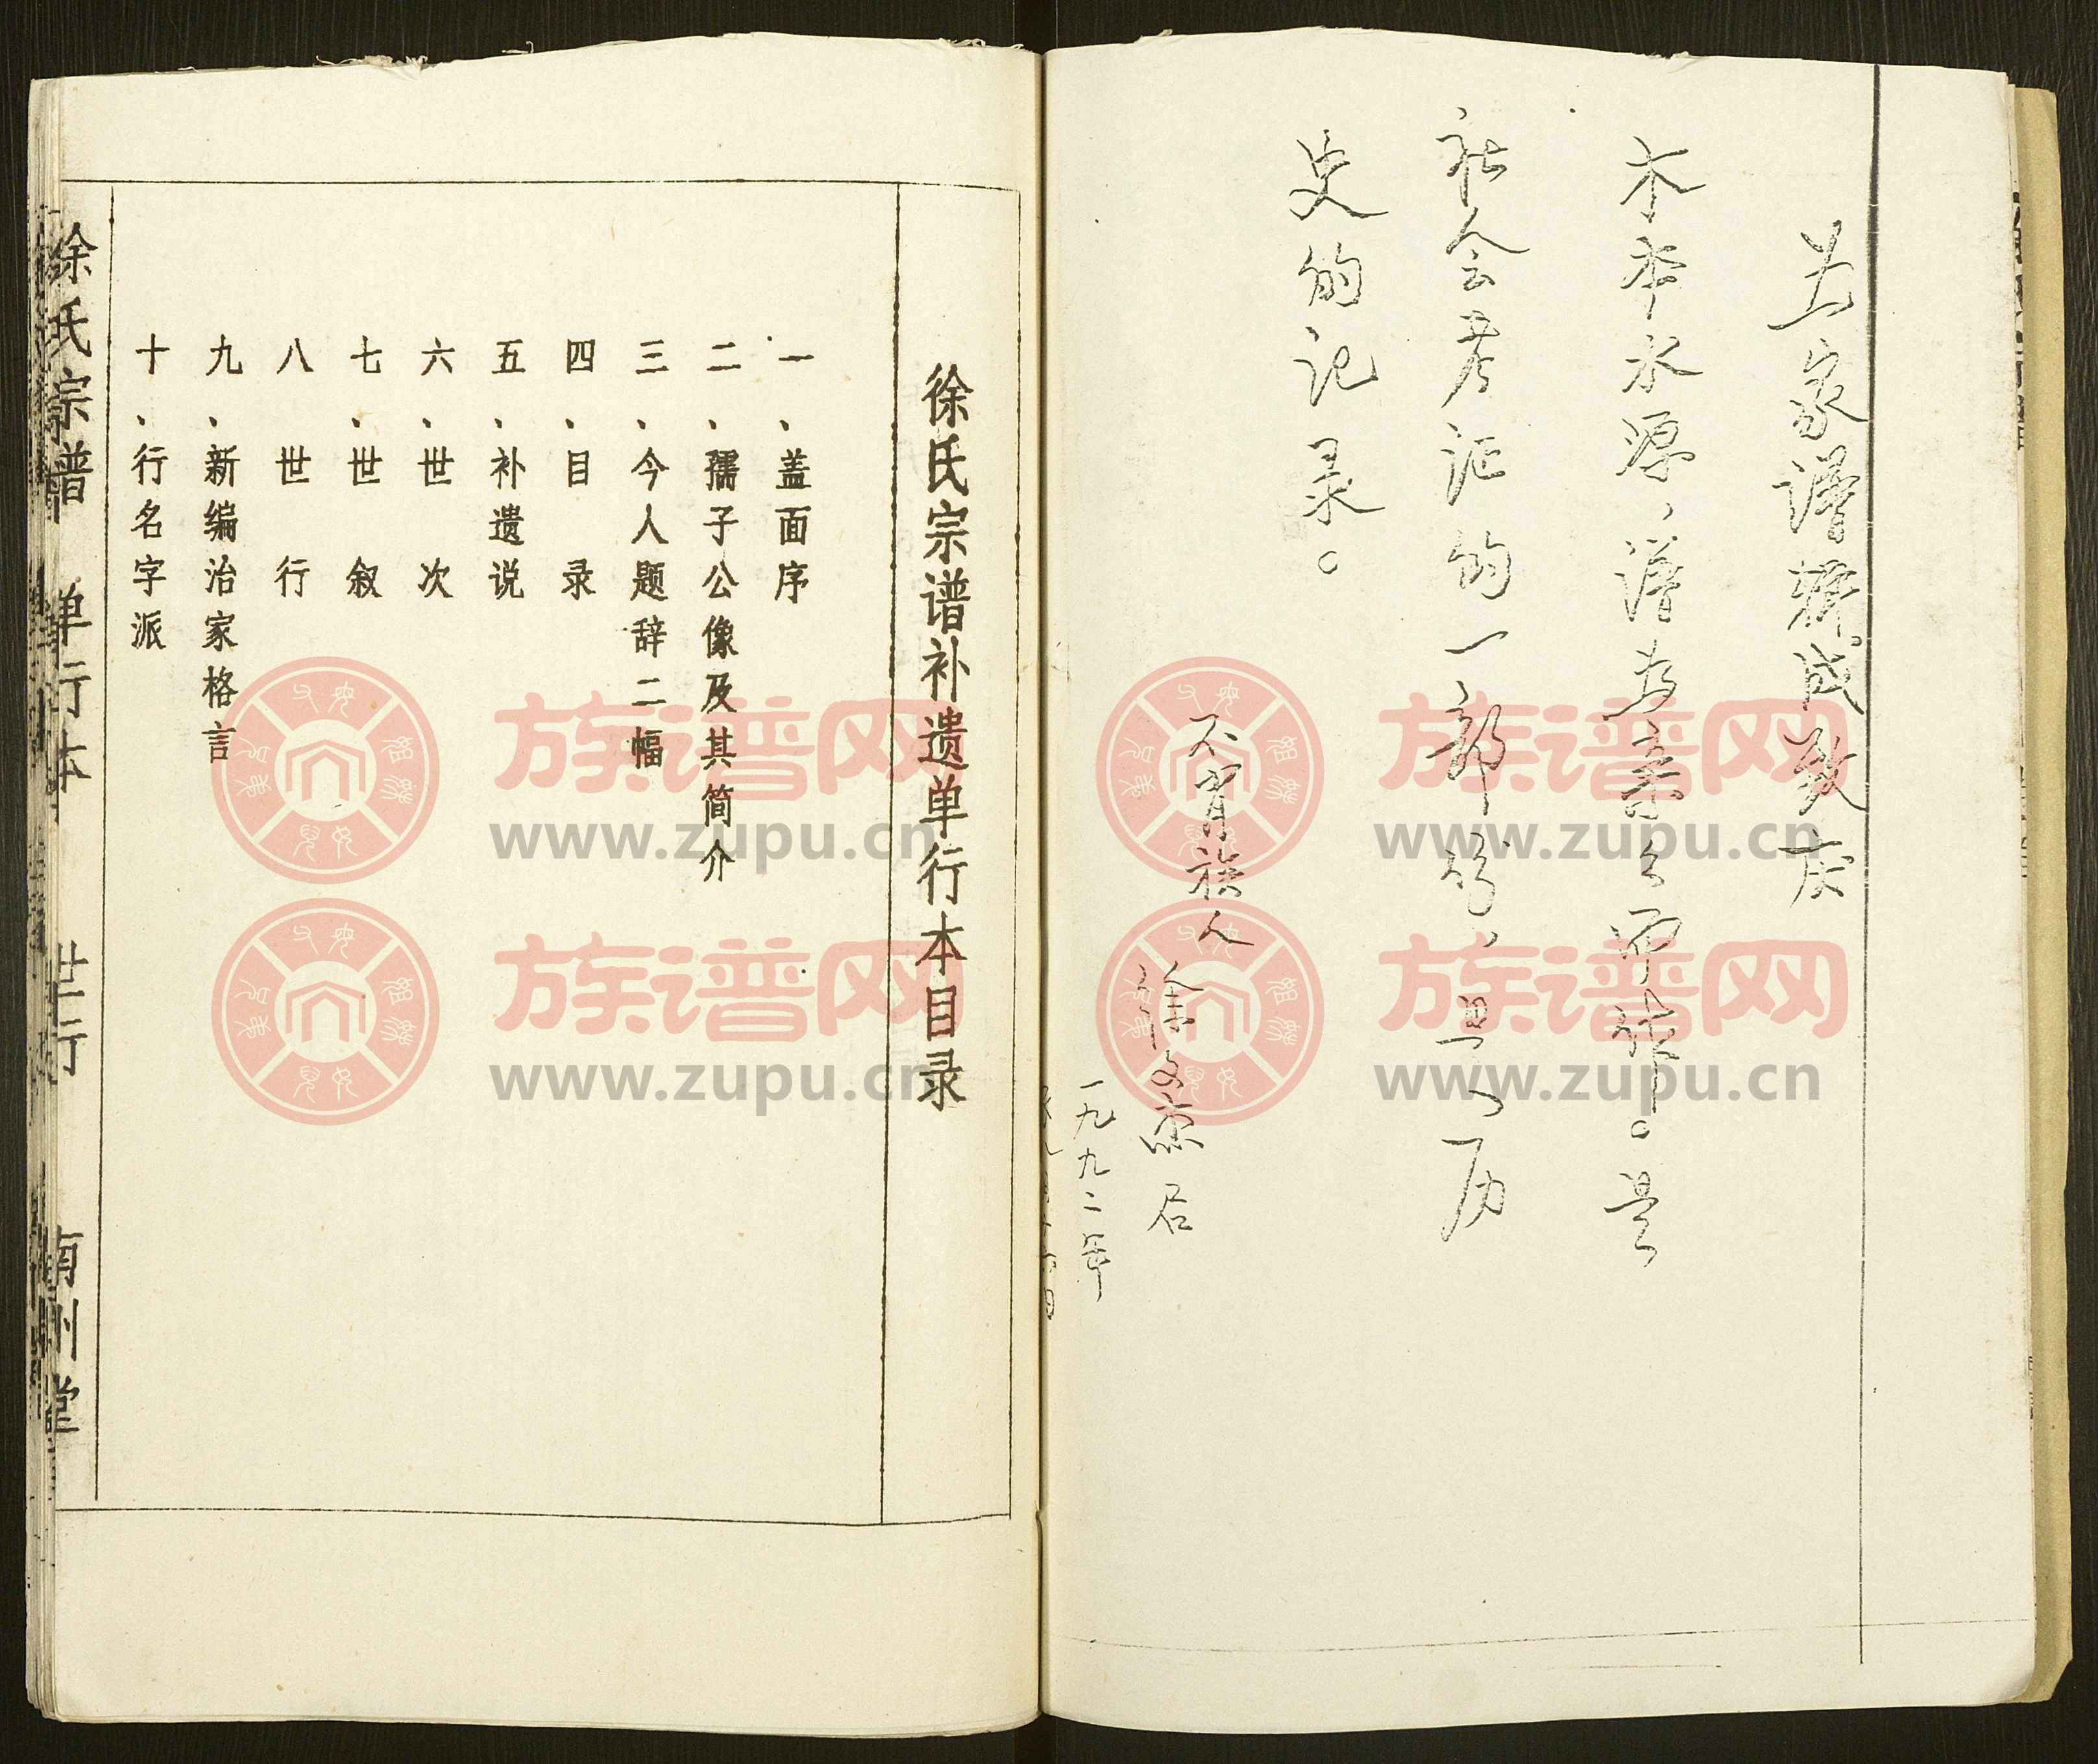 为家谱辑成致庆
木本水源，谱为亲亲而作。是
社会考证的一部份，田下，历
史的记录。
不肖族人
一九九二年
徐氏宗谱补遗单行本目录
一、盖面序
二、孺子公像及其简介
三、今人题辞二幅
四、目录
五、补遗说
六、世次
七、世叙
八 世行
九、新编治家格言
十、行名字派
徐氏宗谱 单行本 世行 南州堂
族谱网
www.zupu.cn
族谱网
www.zupu.cn
族谱网
www.zupu.cn
族谱网
www.zupu.cn